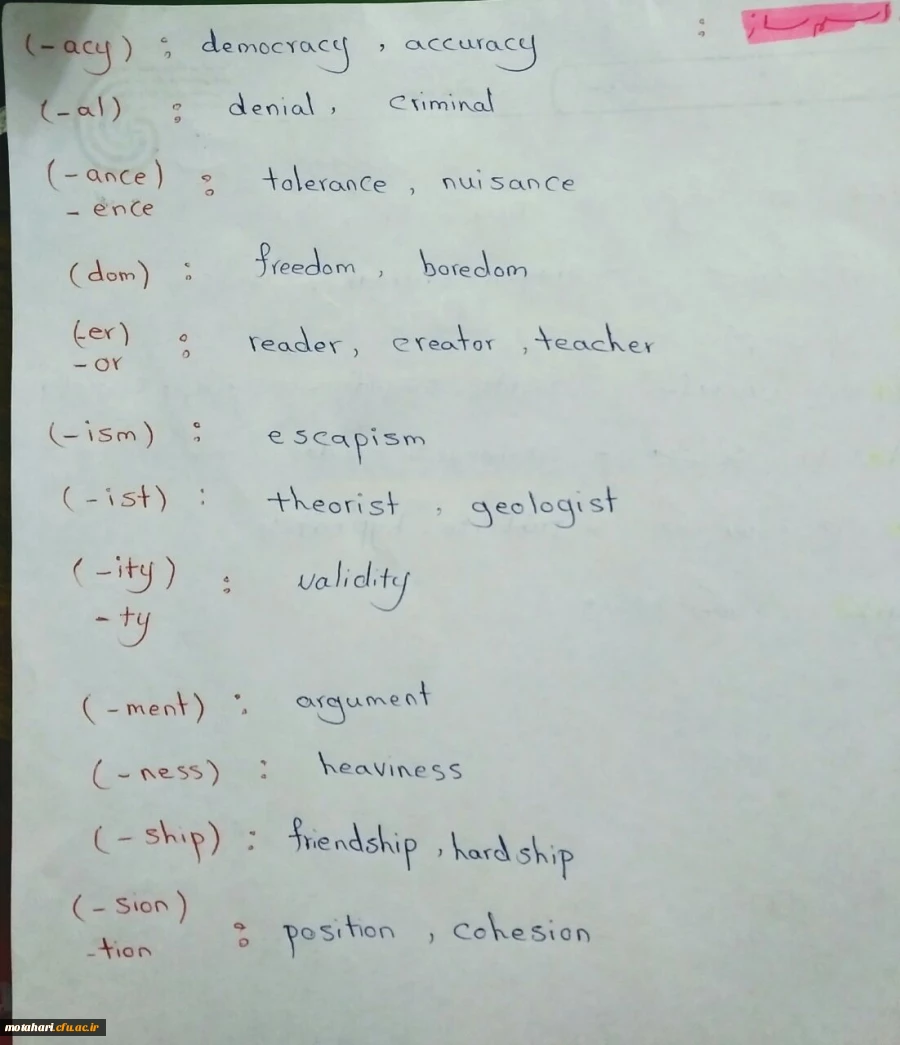 اسم ساز :
(-acy) : democracy , accuracy
(-al) : denial , criminal
(-ance) : tolerance , nuisance
- ence
(dom) : freedom , boredom
(-er) : reader, creator , teacher
- or
(-ism) : escapism
(-ist) : theorist , geologist
(-ity) : validity
- ty
(-ment) : argument
(-ness) : heaviness
(-ship) : friendship , hardship
(-sion)
-tion : position , cohesion
motahari.cfu.ac.ir